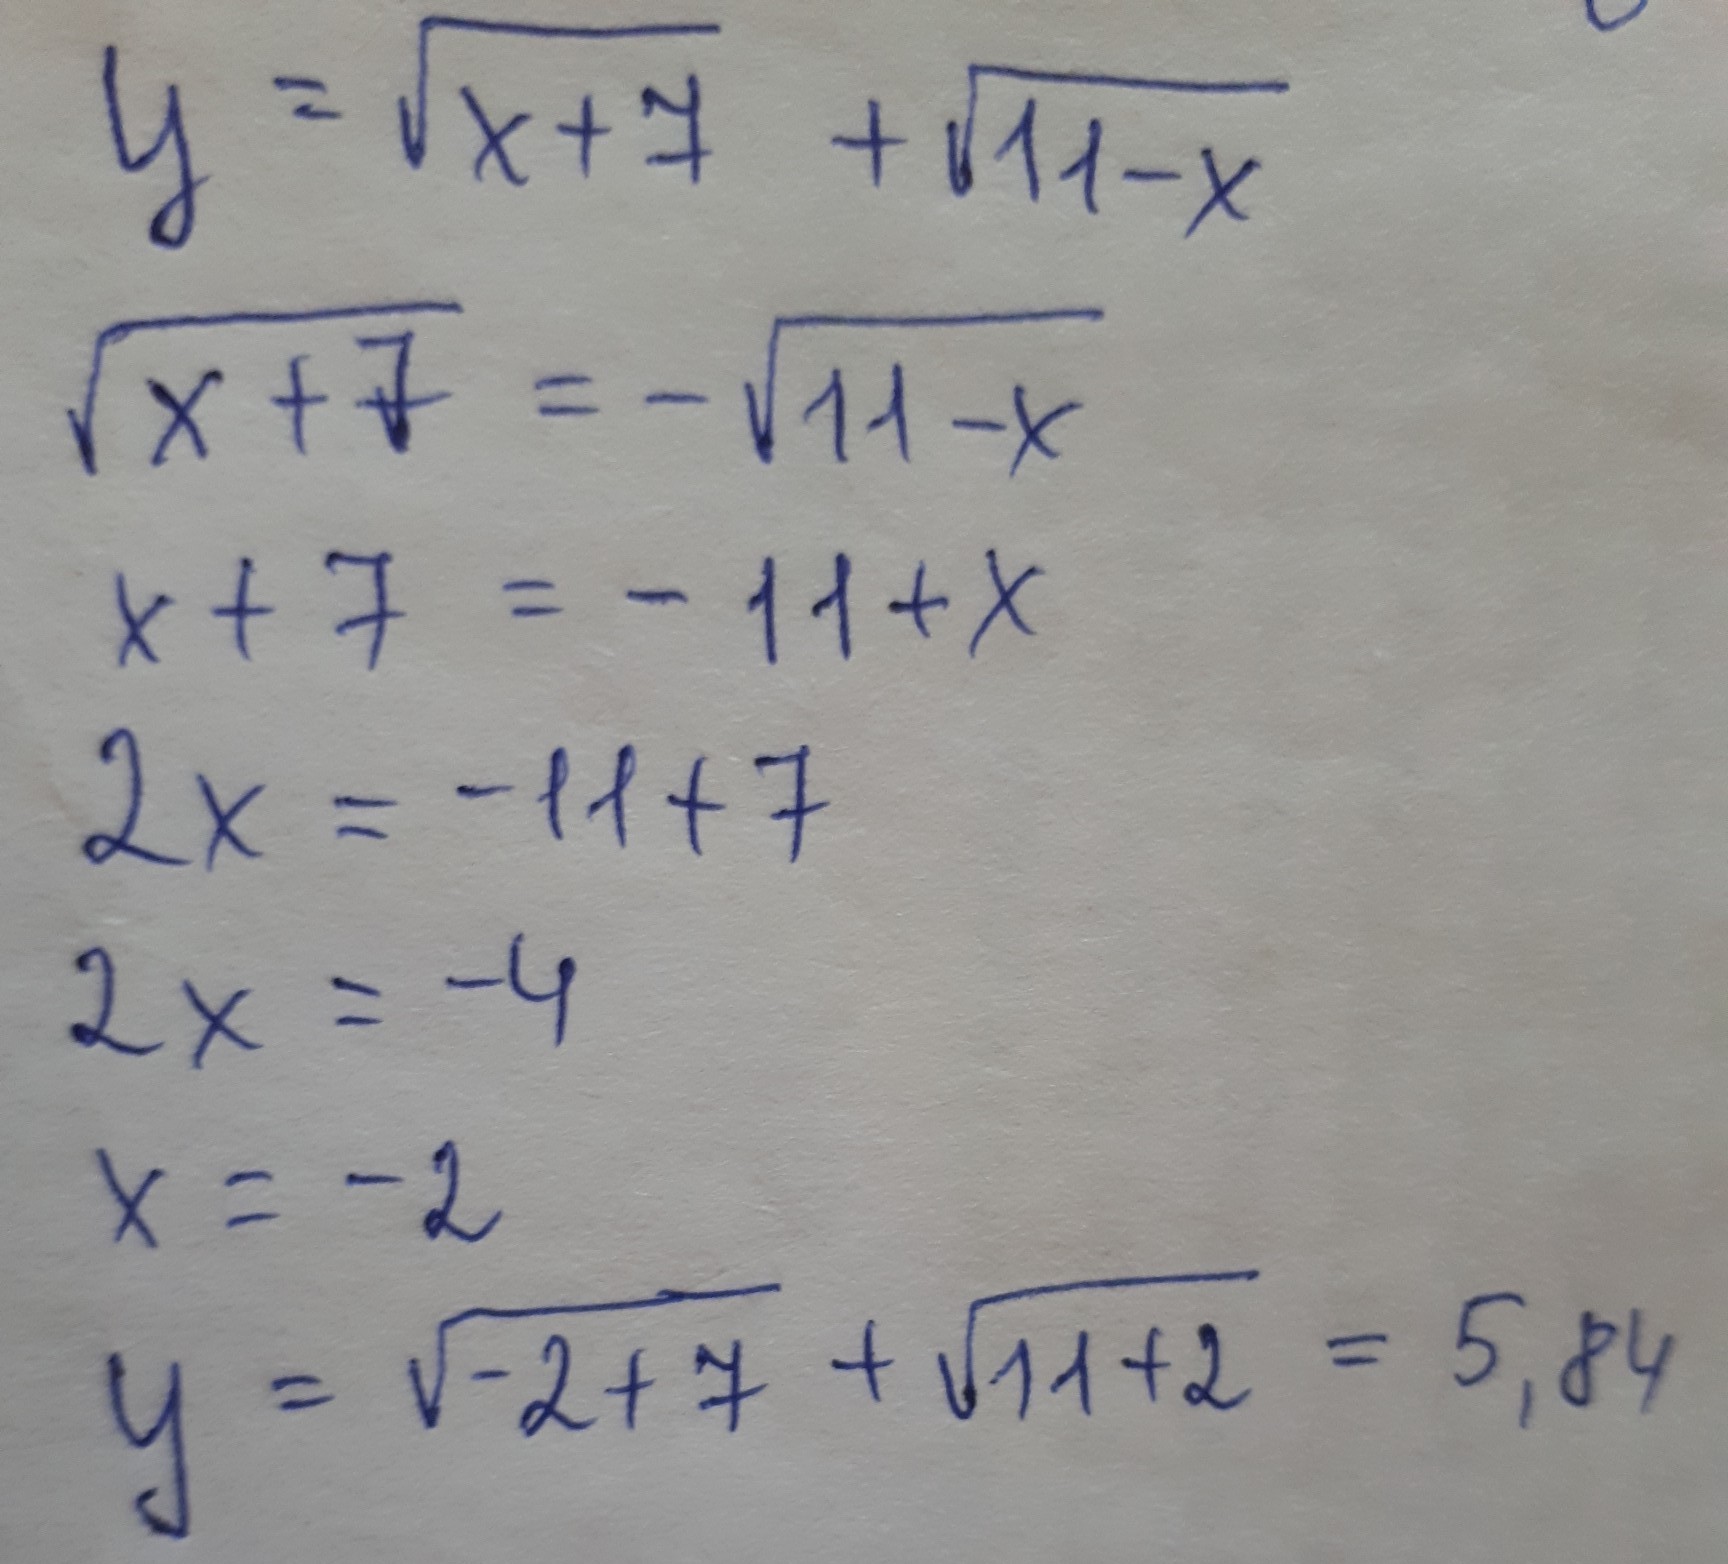 y = √x+7 + √11-x
√x+7 = -√11-x
x+7 = -11+x
2x = -11+7
2x = -4
x = -2
y = √-2+7 + √11+2 = 5,84